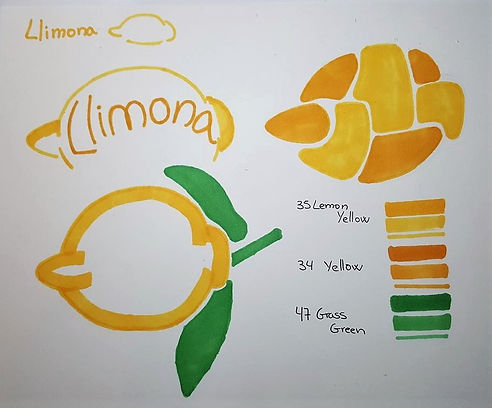 Llimona
Llimona
35 Lemon
Yellow
34 Yellow
47 Grass
Green